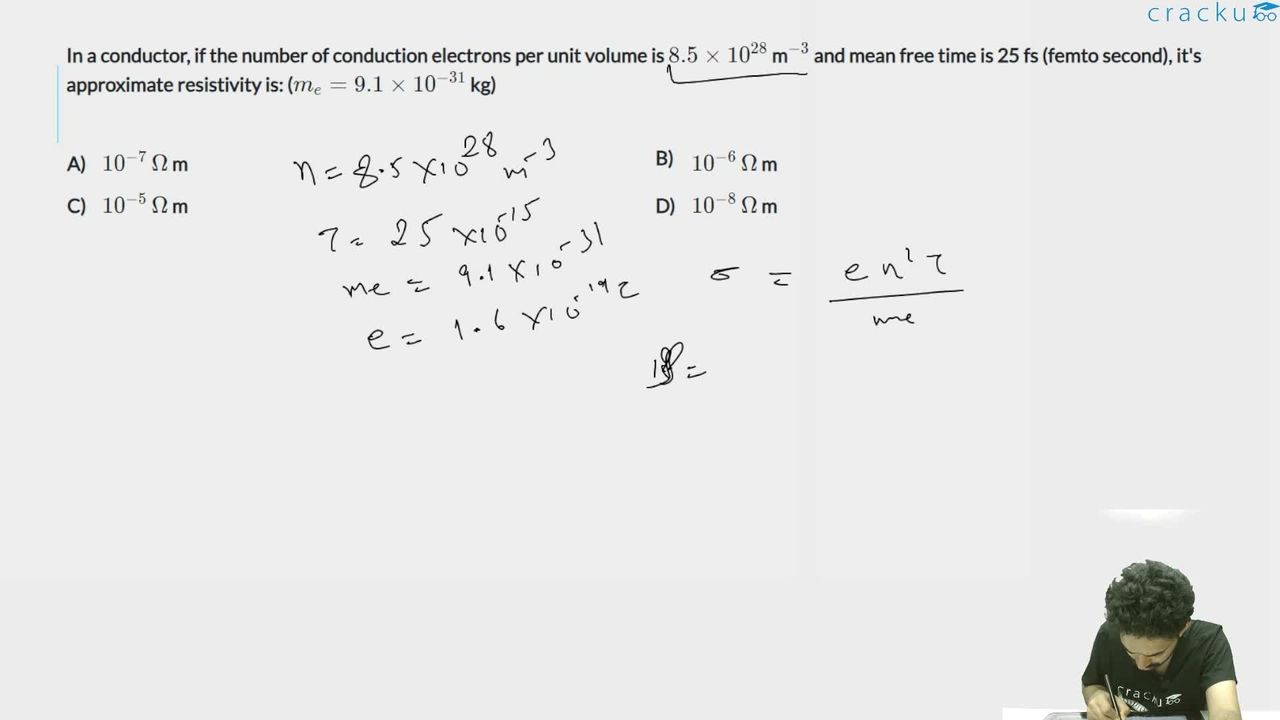 cracku
In a conductor, if the number of conduction electrons per unit volume is 8.5 × 10²⁸ m⁻³ and mean free time is 25 fs (femto second), it's
approximate resistivity is: (mₑ = 9.1 × 10⁻³¹ kg)
A) 10⁻⁷ Ω m
B) 10⁻⁶ Ω m
C) 10⁻⁵ Ω m
D) 10⁻⁸ Ω m
n = 8.5 × 10²⁸ m⁻³
τ = 25 × 10⁻¹⁵
me = 9.1 × 10⁻³¹
e = 1.6 × 10⁻¹⁹ C
σ = e n² τ
me
=
cracku